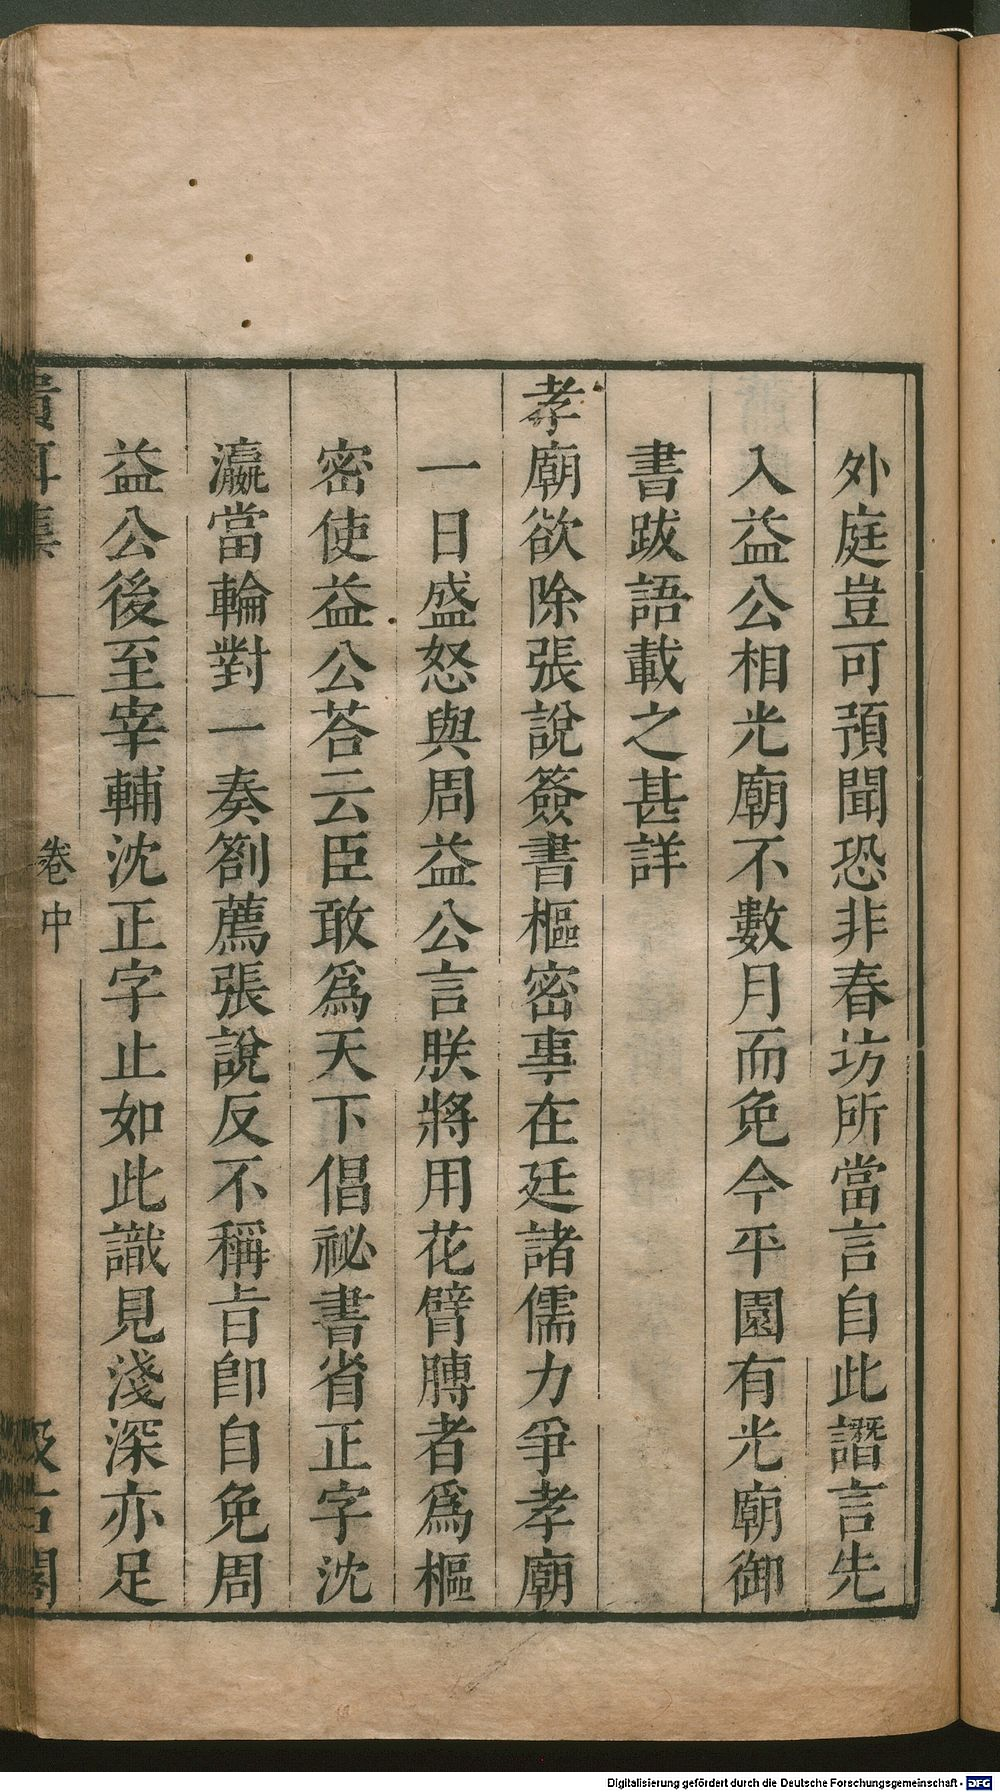 外庭豈可預聞恐非春坊所當言自此譖言先
入益公相光廟不數月而免今平園有光廟御
書跋語載之甚詳
孝廟欲除張說簽書樞密事在廷諸儒力爭孝廟
一日盛怒與周益公言朕將用花臂膊者爲樞
密使益公荅云臣敢爲天下倡祕書省正字沈
瀛當輪對一奏劄薦張說反不稱旨卽自免周
益公後至宰輔沈正字止如此識見淺深亦足
貴耳集
卷中
汲古閣
Digitalisierung gefördert durch die Deutsche Forschungsgemeinschaft - DFG